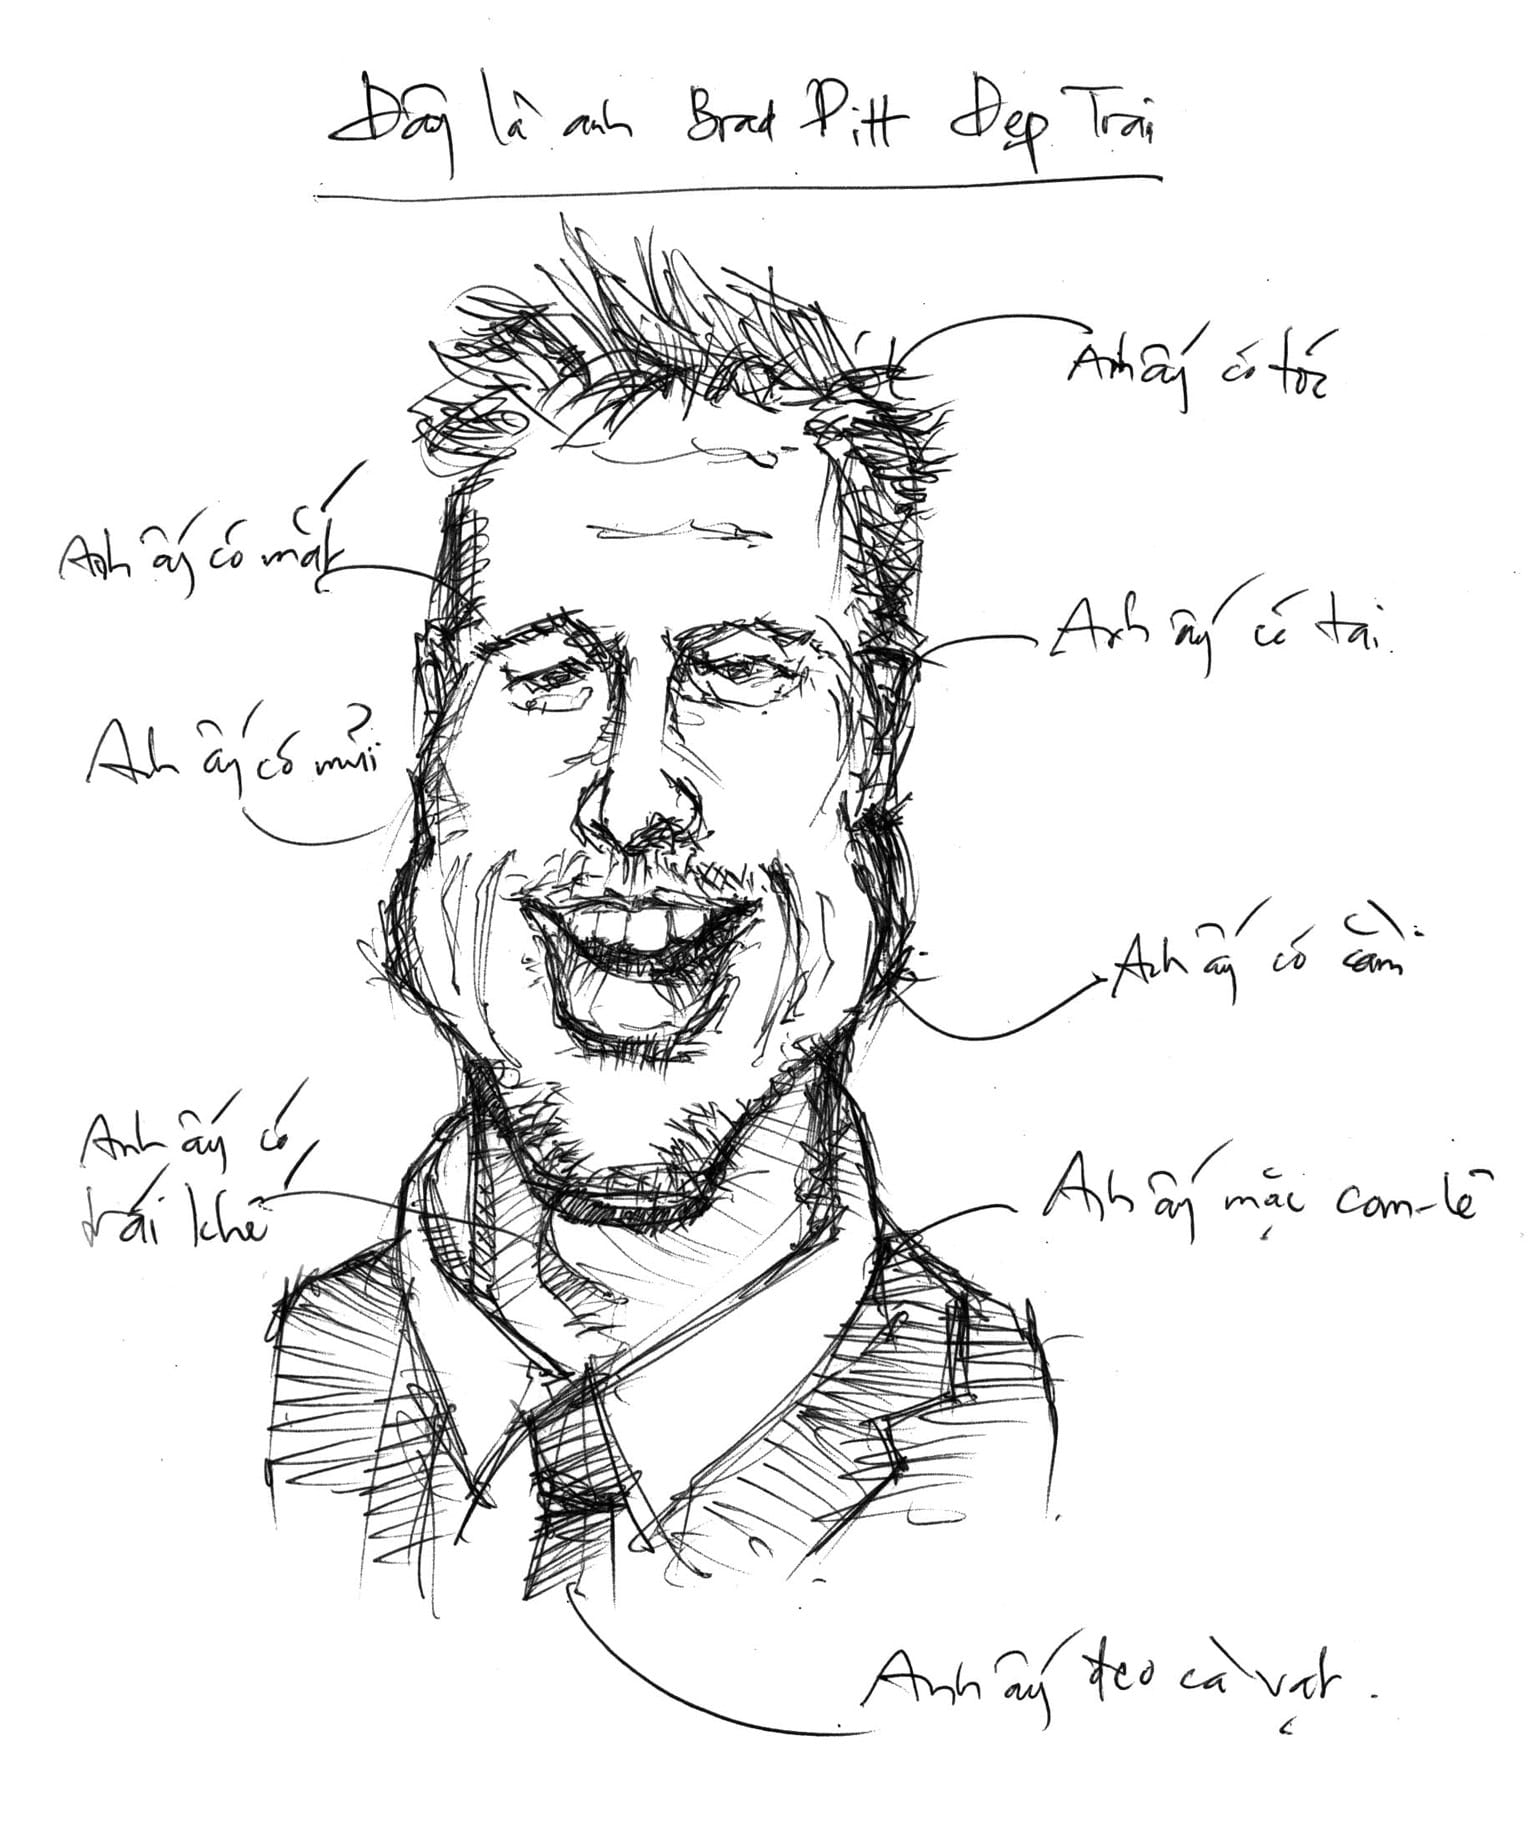 Đây là anh Brad Pitt Đẹp Trai
Anh ấy có tóc
Anh ấy có mắt
Anh ấy có tai.
Anh ấy có mủi
Anh ấy có cằm
Anh ấy có
trái khế
Anh ấy mặc com-lê
Anh ấy đeo cà vạt.